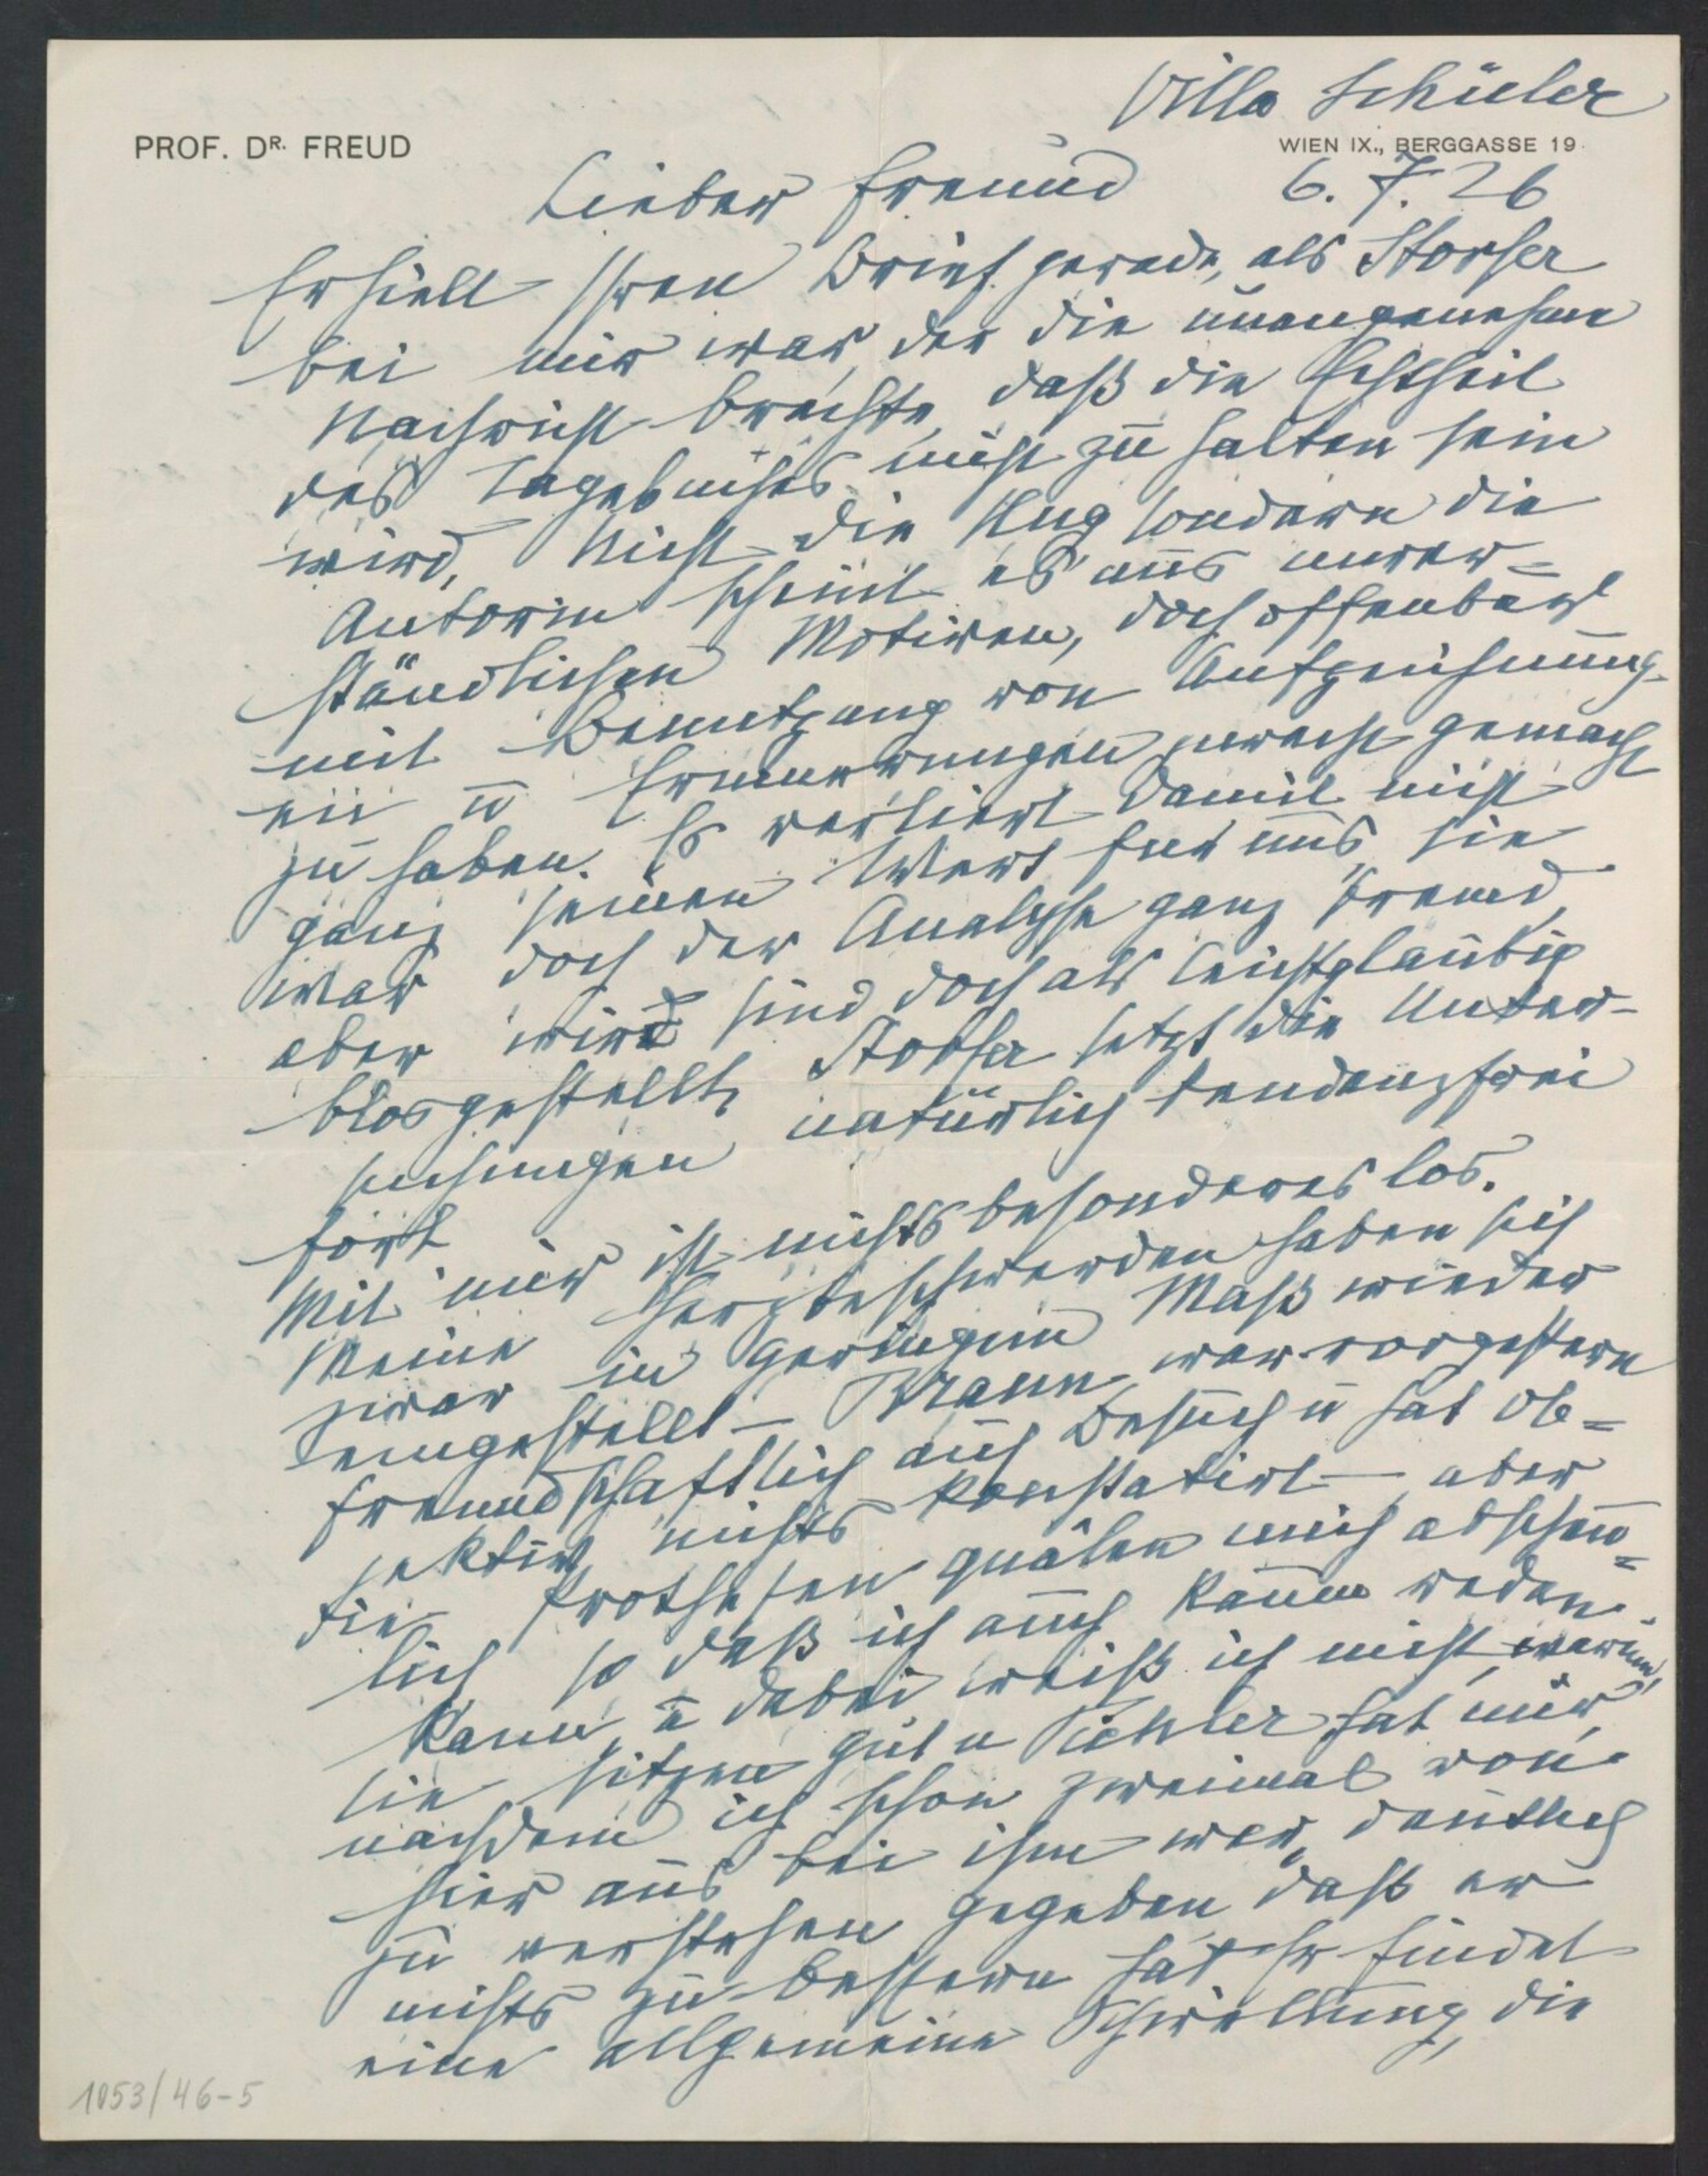 Villa Schüler
PROF. DR. FREUD
WIEN IX., BERGGASSE 19
Lieber Freund 6. 7. 26
Erhielt Ihren Brief gerade, als Storfer
bei mir war, der die unangenehme
Nachricht brachte, daß die Echtheit
des Tagebuches nicht zu halten sein
wird. Nicht die Hug sondern die
Autorin scheint es aus unver=
ständlichen Motiven, doch offenbar
mit Benutzung von Aufzeichnung-
en u Erinnerungen zurecht gemacht
zu haben. Es verliert damit nicht
ganz seinen Wert für uns, sie
war doch der Analyse ganz fremd,
aber wir sind doch als leichtgläubig
blosgestellt. Storfer setzt die Unter-
suchungen natürlich tendenzfrei
fort.
Mit mir ist nichts besonderes los.
Meine Herzbeschwerden haben sich
zwar in geringem Maß wieder
eingestellt – Braun war vorgestern
freundschaftlich auf Besuch u hat ob=
jektiv nichts konstatirt – aber
die Prothesen quälen mich abscheu=
lich so daß ich auch kaum reden
kann, u dabei weiß ich nicht, warum,
sie sitzen gut u Pichler hat mir,
nachdem ich schon zweimal von
hier aus bei ihm war, deutlich
zu verstehen gegeben daß er
nichts zu bessern hat. Er findet
eine allgemeine Schwellung, die
1053/46-5